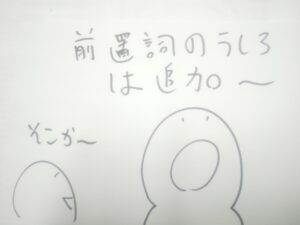 前置詞のうしろ
は追加〜
そこか〜